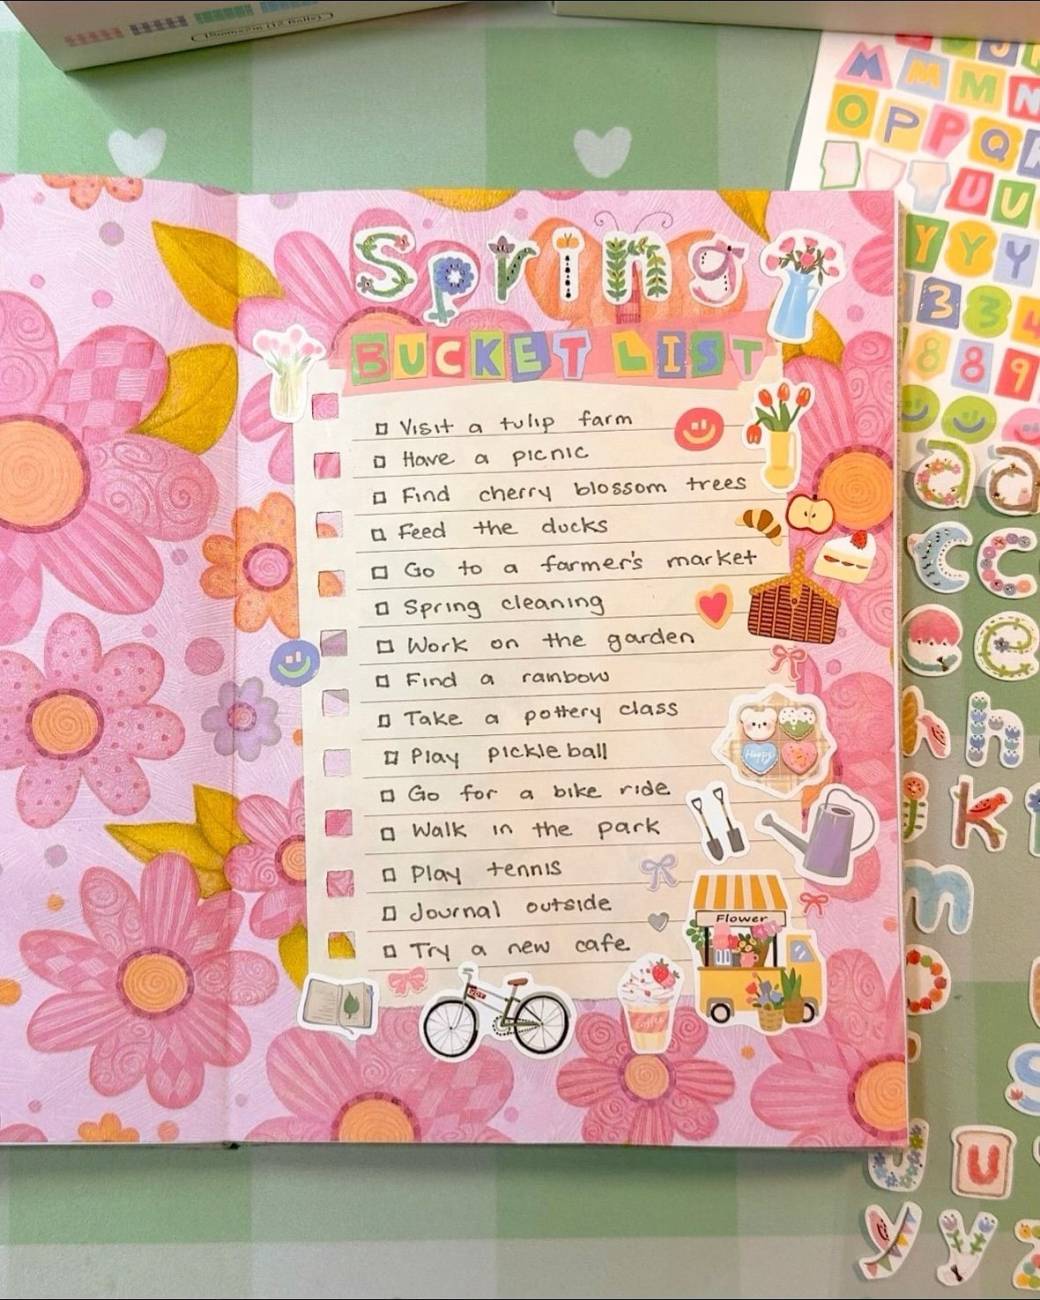 Spring
BUCKET LIST
Visit a tulip farm
Have a picnic
Find cherry blossom trees
Feed the ducks
Go to a farmer's market
Spring cleaning
Work on the garden
Find a rainbow
Take a pottery class
Play pickleball
Happy
Go for a bike ride
Walk in the park
Play tennis
Journal outside
Flower
Try a new cafe
M M M N
O P P Q
U U
Y Y Y
3 3 4
8 8 9
a a
c c
e e
h h
k
m
u u
y y z